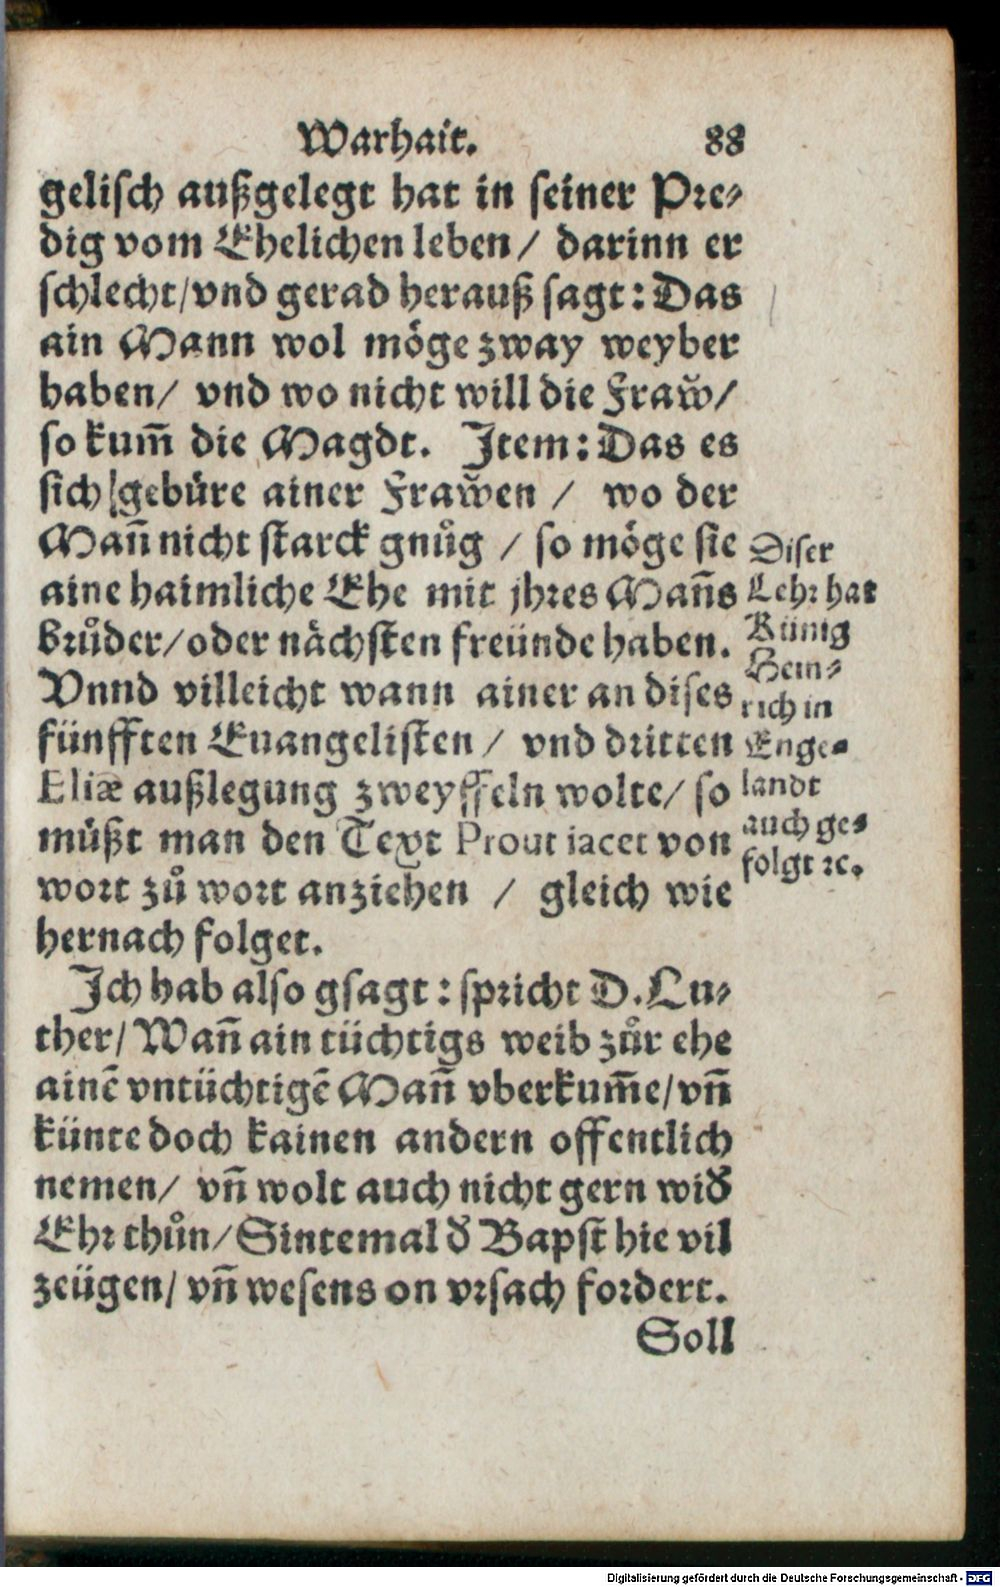 Warhait. 88
gelisch außgelegt hat in seiner Pre-
dig vom Ehelichen leben/ darinn er
schlecht/vnd gerad herauß sagt: Das
ain Mann wol möge zway weyber
haben/ vnd wo nicht will die Fraw̃/
so kum̃ die Magdt. Item: Das es
sich gebüre ainer Fraw̃en / wo der
Mañ nicht starck gnůg / so möge sie
aine haimliche Ehe mit jhres Mañs
brůder/oder nächsten freünde haben.
Vnnd villeicht wann ainer an dises
fünfften Euangelisten/ vnd dritten
Eliæ außlegung zweyffeln wolte/ so
müßt man den Text Prout iacet von
wort zů wort anziehen / gleich wie
hernach folget.
Diser
Lehr hat
Künig
Hein-
rich in
Enge-
landt
auch ge-
folgt ꝛc.
Ich hab also gsagt: spricht D. Lu-
ther/ Wañ ain tüchtigs weib zůr ehe
ainẽ vntüchtigẽ Mañ vberkum̃e/vñ
künte doch kainen andern offentlich
nemen/ vñ wolt auch nicht gern wid̃
Ehr thůn/ Sintemal d̃ Bapst hie vil
zeügen/ vñ wesens on vrsach fordert.
Soll
Digitalisierung gefördert durch die Deutsche Forschungsgemeinschaft - DFG